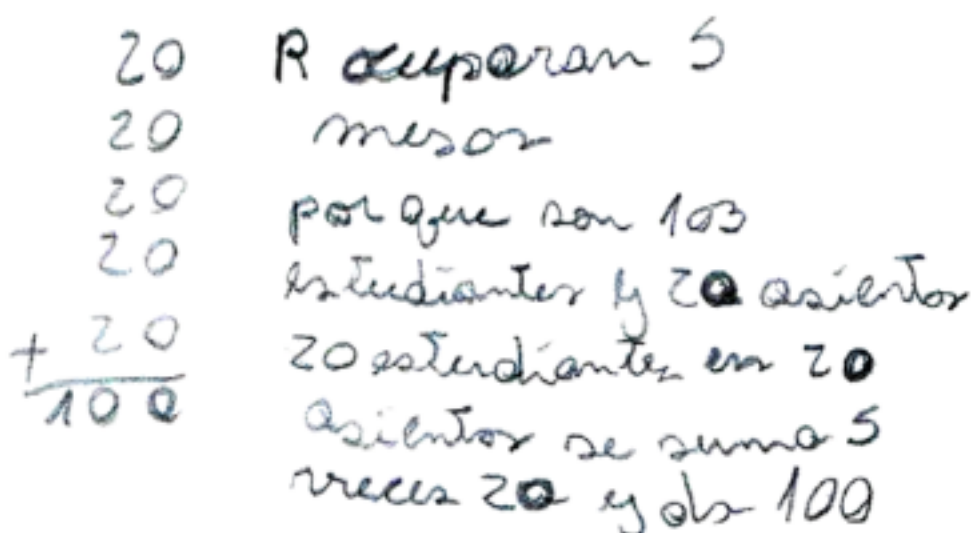 20
20
20
20
+ 20
100
R ocuparan 5
mesas
por que son 103
estudiantes y 20 asientos
20 estudiantes en 20
asientos se suma 5
veces 20 y da 100